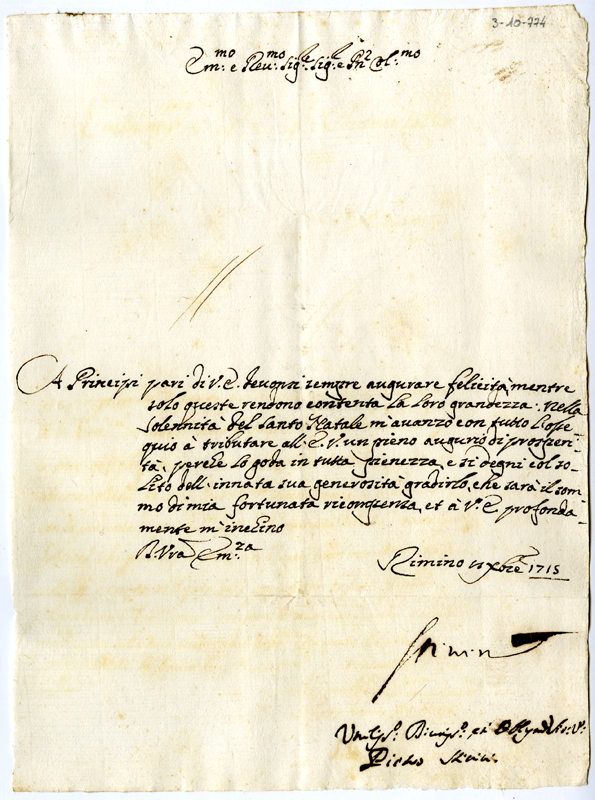 3-10-774
Em:mo e Reu:mo Sig:re Sig:re e Pne Col:mo
A Principi pari di V.E. deuonsi sempre augurare felicità, mentre
solo queste rendono contenta la loro grandezza. Nella
solennità del Santo Natale m'auanzo con tutto l'osse-
quio à tributare all'E.V. un pieno augurio di prosperi-
tà, perche lo goda in tutta pienezza, e si degni col so-
lito dell'innata sua generosità gradirlo, che sarà il som-
mo di mia fortunata ricompensa, et à V.E. profonda-
mente m'inchino
D.Vra Em:za
Rimino Xbre 1715
Pietro